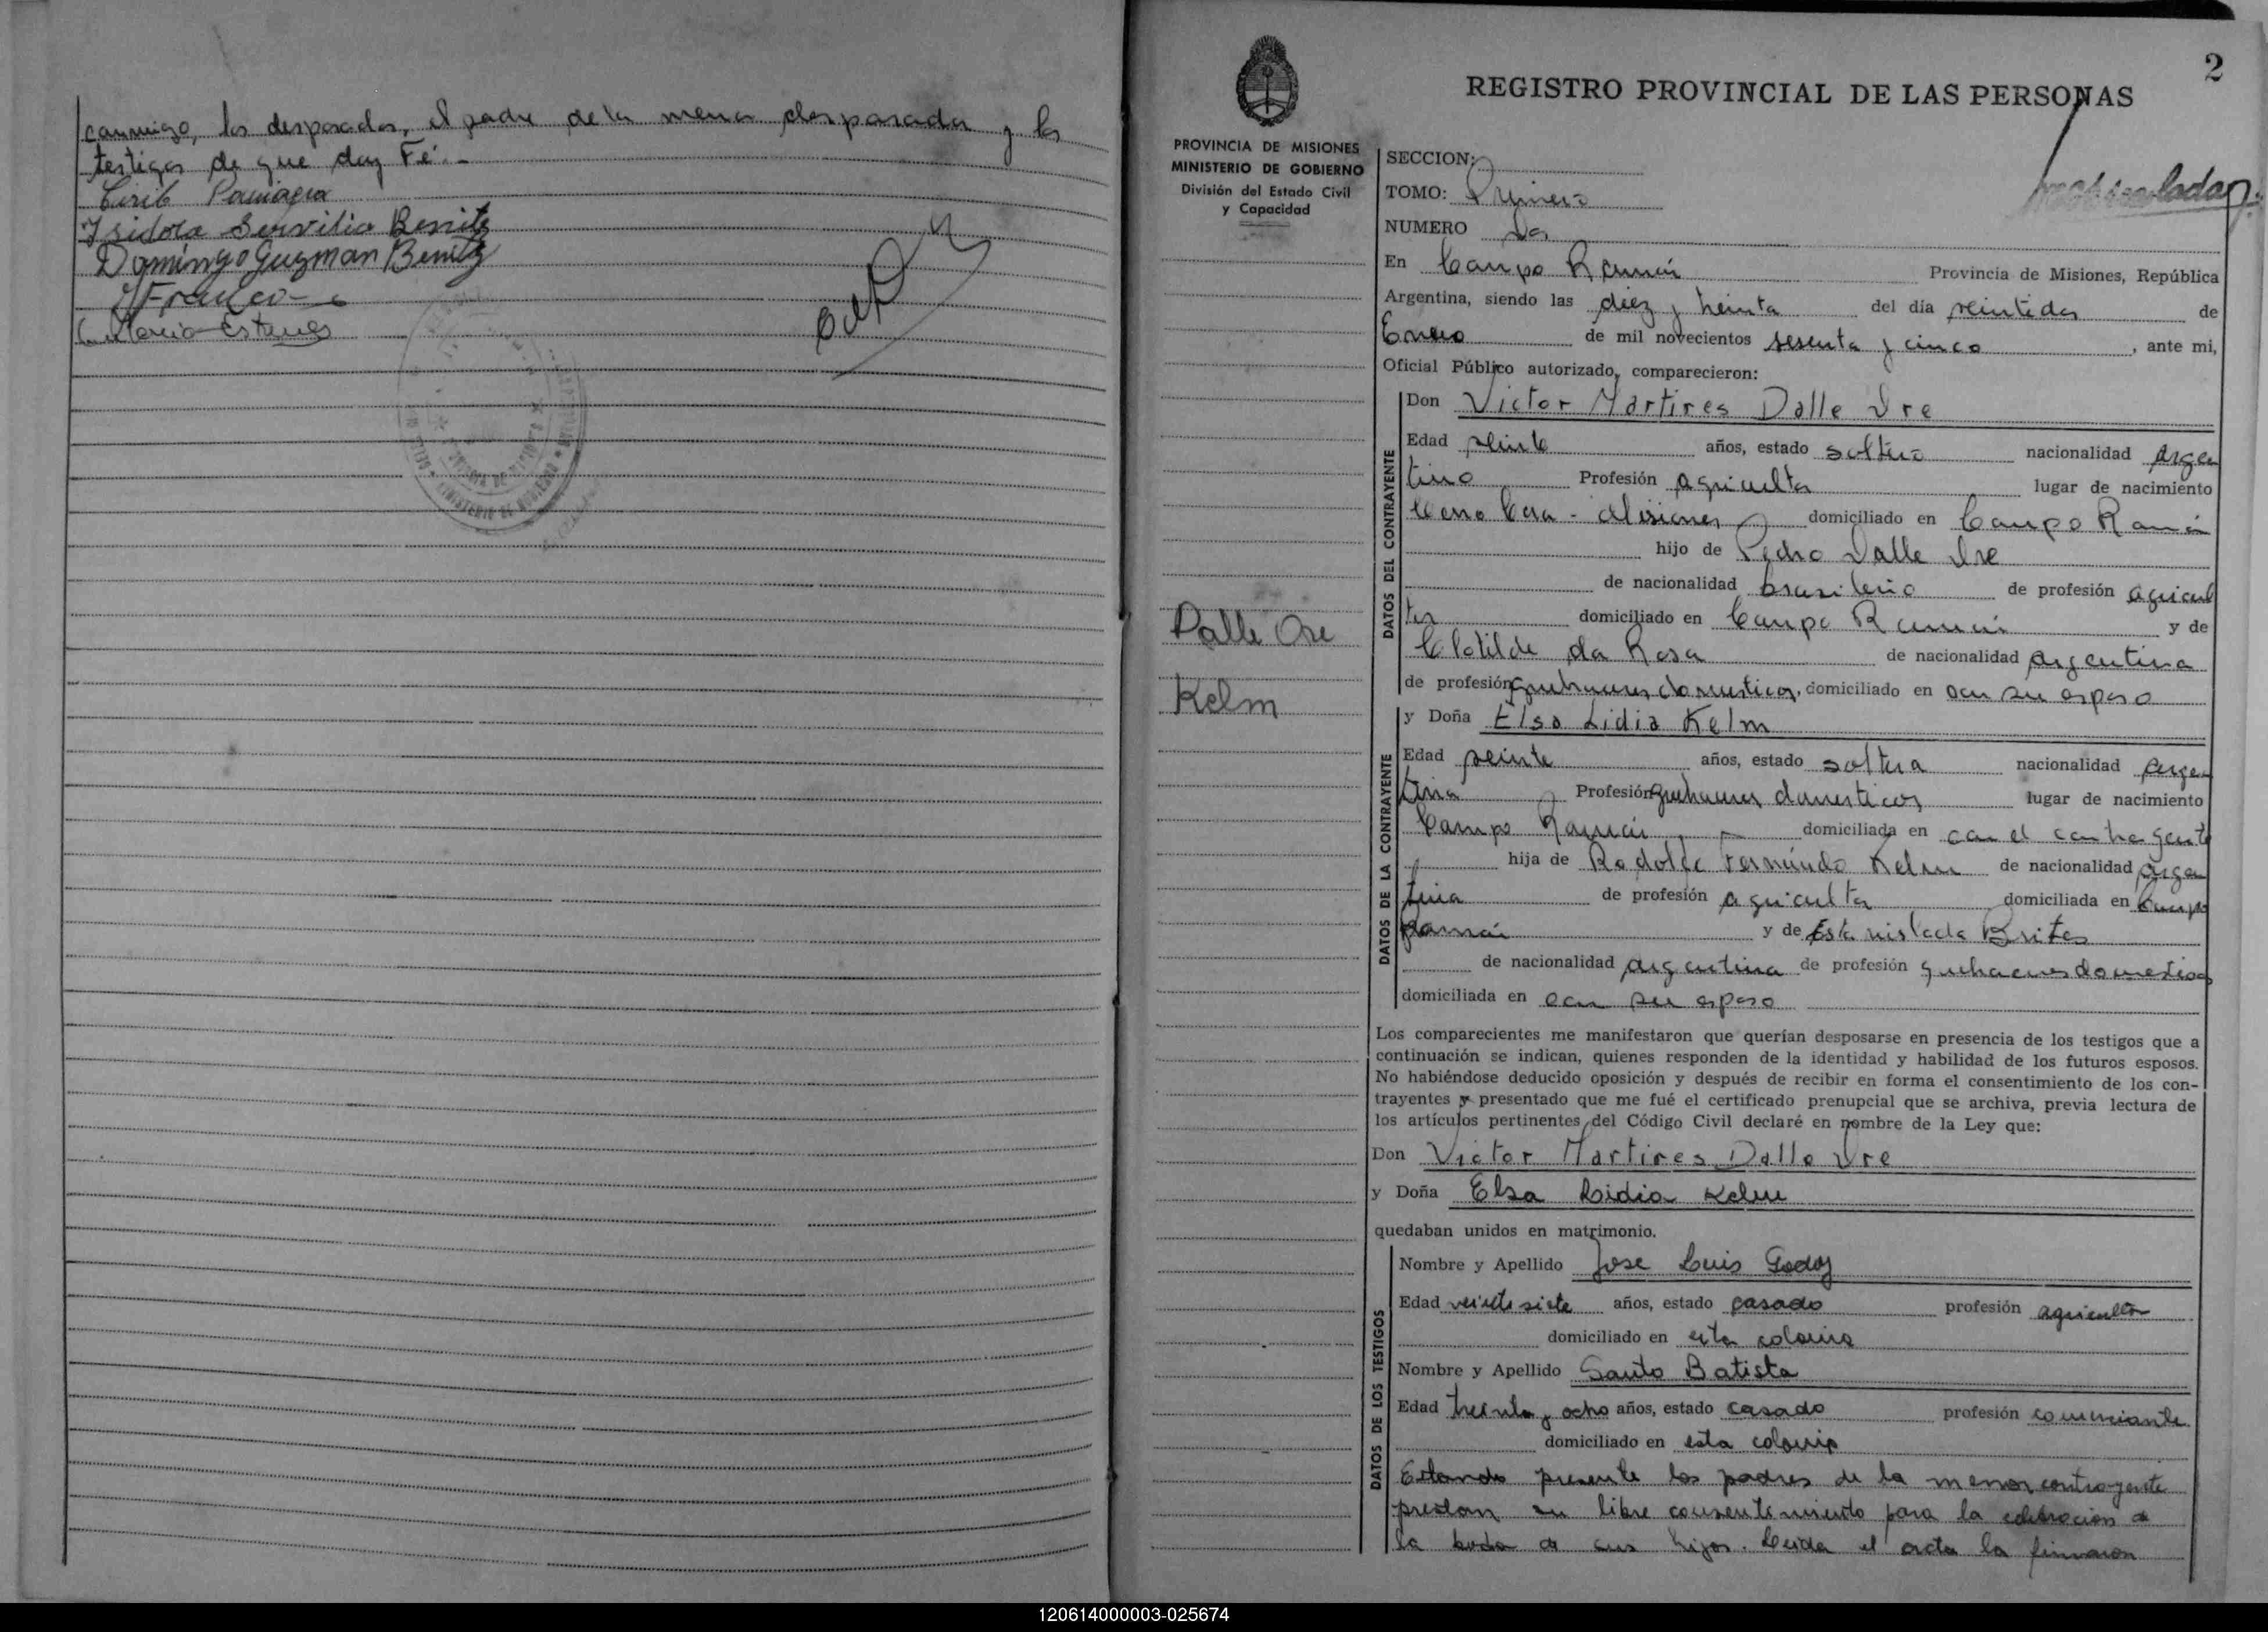 conmigo, los desposados, el padre de la menor desposada y los
testigos de que doy Fé.-
Cirilo Paniagua
Isidora Servilia Benitz
Domingo Guzman Benitz
JFranco
Estanes
2
REGISTRO PROVINCIAL DE LAS PERSONAS
PROVINCIA DE MISIONES
MINISTERIO DE GOBIERNO
División del Estado Civil
y Capacidad
SECCION:
TOMO: Primero
NUMERO Dos
En Campo Ramón Provincia de Misiones, República
Argentina, siendo las diez y treinta del día veintidos de
Enero de mil novecientos sesenta y cinco, ante mi,
Oficial Público autorizado, comparecieron:
DATOS DEL CONTRAYENTE
Don Victor Martires Dalle Ore
Edad veinte años, estado soltero nacionalidad Argen
tino Profesión agricultor lugar de nacimiento
Cerro Cora - Misiones domiciliado en Campo Ramón
hijo de Pedro Dalle Ore
de nacionalidad brasileño de profesión agricul
tor domiciliado en Campo Ramón y de
Clotilde da Rosa de nacionalidad argentina
de profesión quehaceres domesticos, domiciliado en con su esposo
Dalle Ore
Kelm
DATOS DE LA CONTRAYENTE
y Doña Elsa Lidia Kelm
Edad veinte años, estado soltera nacionalidad argen
tina Profesión quehaceres domesticos lugar de nacimiento
Campo Ramón, domiciliada en con el contrayente
hija de Rodolfo Fernándo Kelm de nacionalidad argen
tina de profesión agricultor domiciliada en Campo
Ramón y de Estanislada Brites
de nacionalidad argentina de profesión quehaceres domesticos
domiciliada en con su esposo
Los comparecientes me manifestaron que querían desposarse en presencia de los testigos que a
continuación se indican, quienes responden de la identidad y habilidad de los futuros esposos.
No habiéndose deducido oposición y después de recibir en forma el consentimiento de los con-
trayentes y presentado que me fué el certificado prenupcial que se archiva, previa lectura de
los artículos pertinentes del Código Civil declaré en nombre de la Ley que:
Don Victor Martires Dalle Ore
y Doña Elsa Lidia Kelm
quedaban unidos en matrimonio.
DATOS DE LOS TESTIGOS
Nombre y Apellido Jose Luis Godoy
Edad veinte siete años, estado casado profesión agricultor
domiciliado en esta colonia
Nombre y Apellido Santo Batista
Edad treinta y ocho años, estado casado profesión comerciante
domiciliado en esta colonia
Estando presente los padres de la menor contrayente
prestan su libre consentimiento para la celebracion de
la boda de sus hijos. Leida el acta la firmaron
120614000003-025674